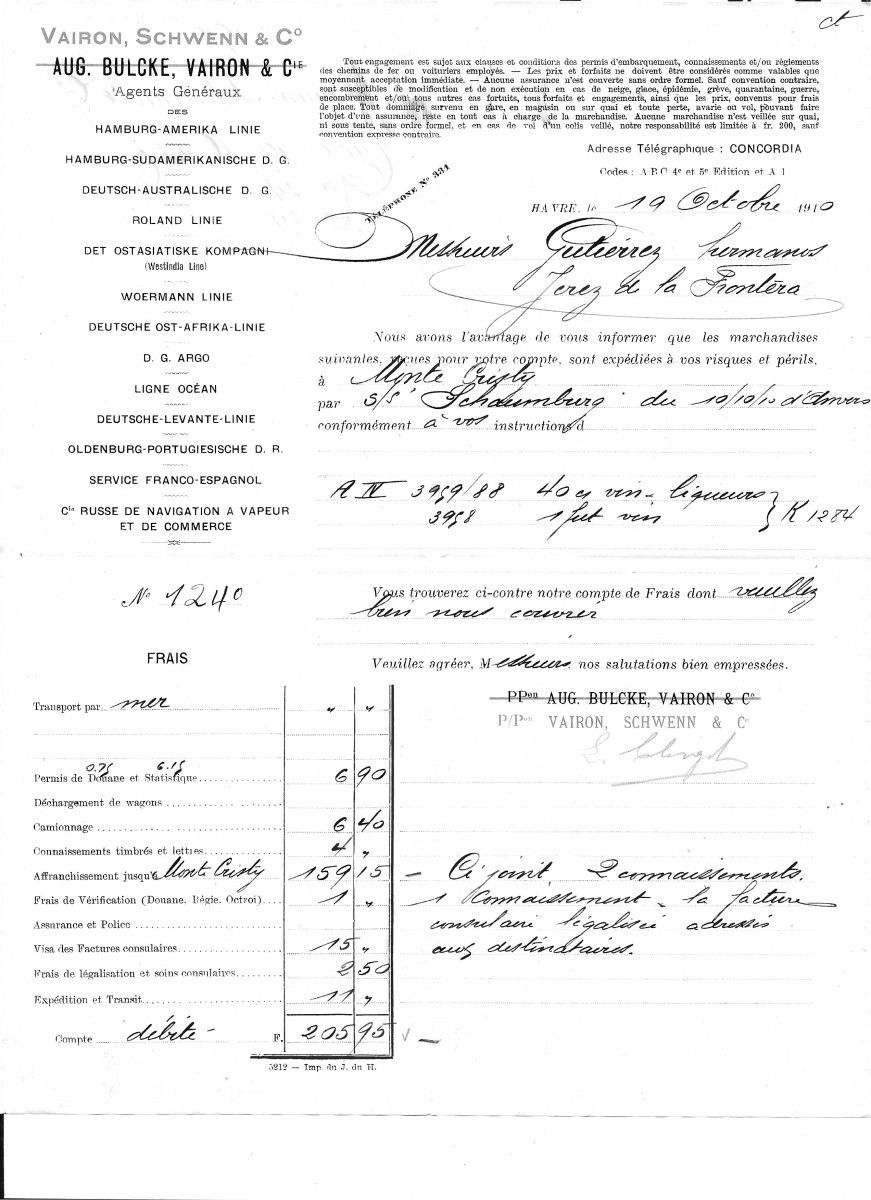 ct
VAIRON, SCHWENN & Cº
AUG. BULCKE, VAIRON & CIE
Agents Généraux
DES
HAMBURG-AMERIKA LINIE
HAMBURG-SUDAMERIKANISCHE D. G.
DEUTSCH-AUSTRALISCHE D. G.
ROLAND LINIE
DET OSTASIATISKE KOMPAGNI
(Westindia Line)
WOERMANN LINIE
DEUTSCHE OST-AFRIKA-LINIE
D. G. ARGO
LIGNE OCÉAN
DEUTSCHE-LEVANTE-LINIE
OLDENBURG-PORTUGIESISCHE D. R.
SERVICE FRANCO-ESPAGNOL
Cie RUSSE DE NAVIGATION A VAPEUR
ET DE COMMERCE
Tout engagement est sujet aux clauses et conditions des permis d'embarquement, connaissements et/ou règlements
des chemins de fer ou voituriers employés. — Les prix et forfaits ne doivent être considérés comme valables que
moyennant acceptation immédiate. — Aucune assurance n'est couverte sans ordre formel. Sauf convention contraire,
sont susceptibles de modification et de non exécution en cas de neige, glace, épidémie, grève, quarantaine, guerre,
encombrement et/ou tous autres cas fortuits, tous forfaits et engagements, ainsi que les prix, convenus pour frais
de place. Tout dommage survenu en gare, en magasin ou sur quai et toute perte, avarie ou vol, pouvant faire
l'objet d'une assurance, reste en tout cas à charge de la marchandise. Aucune marchandise n'est veillée sur quai,
ni sous tente, sans ordre formel, et en cas de vol d'un colis veillé, notre responsabilité est limitée à fr. 200, sauf
convention expresse contraire.
Adresse Télégraphique : CONCORDIA
Codes : A B C 4e et 5e Edition et A 1
TÉLÉPHONE Nº 331
HAVRE, le 19 Octobre 1910
Messieurs Gutiérrez hermanos
Jerez de la Frontéra
Nous avons l'avantage de vous informer que les marchandises
suivantes, reçues pour votre compte, sont expédiées à vos risques et périls,
à Monte Cristy
par S/S "Schaumburg" du 10/10/10 d'Anvers
conformément à vos instructions
A IV 3959/88 40 cs vin - liqueurs
3958 1 fut vin } K 1284
No 1240
Vous trouverez ci-contre notre compte de Frais dont veuillez
bien nous couvrir
Veuillez agréer, Messieurs, nos salutations bien empressées.
PPon AUG. BULCKE, VAIRON & Cº
P/Pon VAIRON, SCHWENN & Cº
FRAIS
Transport par mer " "
0.75 6.15
Permis de Douane et Statistique 6 90
Déchargement de wagons
Camionnage 6 40
Connaissements timbrés et lettres 4 "
Affranchissement jusqu'à Monte Cristy 159 15
Frais de Vérification (Douane. Régie. Octroi) 1 "
Assurance et Police
Visa des Factures consulaires 15 "
Frais de légalisation et soins consulaires 2 50
Expédition et Transit 11 "
Compte débité - F. 205 95
5212 — Imp. du J. du H.
— Ci joint 2 connaissements.
1 connaissement - la facture
consulaire légalisée adressés
aux destinataires.